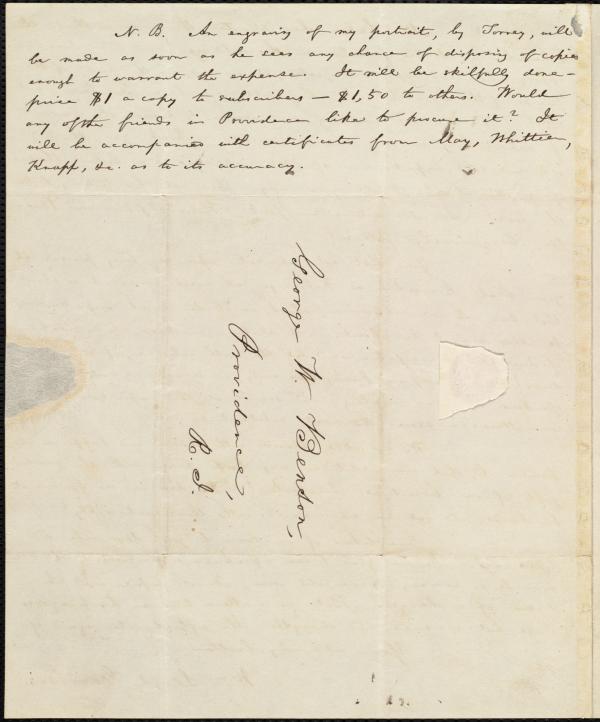 N. B. An engraving of my portrait, by Torrey, will
be made as soon as he sees any chance of disposing of copies
enough to warrant the expense. It will be skilfully done –
price $1 a copy to subscribers – $1,50 to others. Would
any of the friends in Providence like to procure it? It
will be accompanied with certificates from May, Whittier,
Knapp, &c. as to its accuracy.
George W. Benson,
Providence,
R. I.